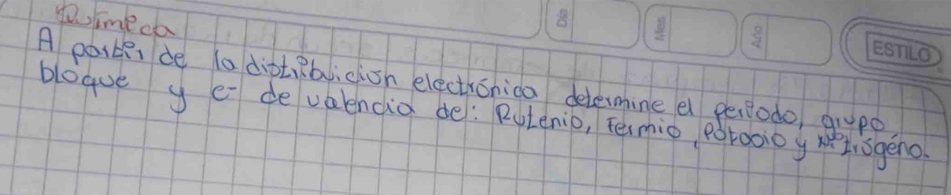 Química
Dia
Mes
Año
ESTILO
A partir de la distribuicion electrónica determine el periodo, grupo
bloque y e- de valencia de: Rutenio, Fermio, potasio y nitrógeno.